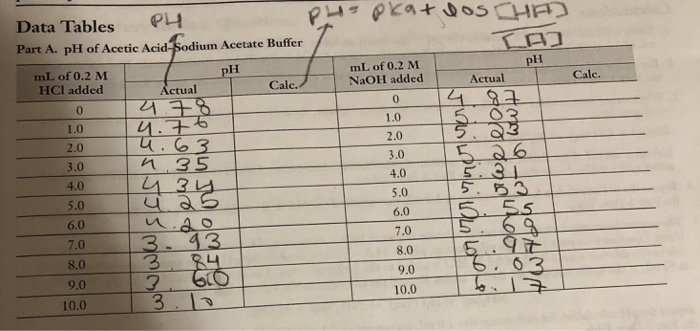 Data Tables PH PH = PKa + log [HA]
[A]
Part A. pH of Acetic Acid-Sodium Acetate Buffer
mL of 0.2 M HCl added pH mL of 0.2 M NaOH added pH
Actual Calc. Actual Calc.
0 4.78 0 4.87
1.0 4.76 1.0 5.03
2.0 4.63 2.0 5.23
3.0 4.35 3.0 5.26
4.0 4.34 4.0 5.31
5.0 4.25 5.0 5.53
6.0 4.20 6.0 5.55
7.0 3.93 7.0 5.68
8.0 3.84 8.0 5.97
9.0 3.60 9.0 6.03
10.0 3.10 10.0 6.17